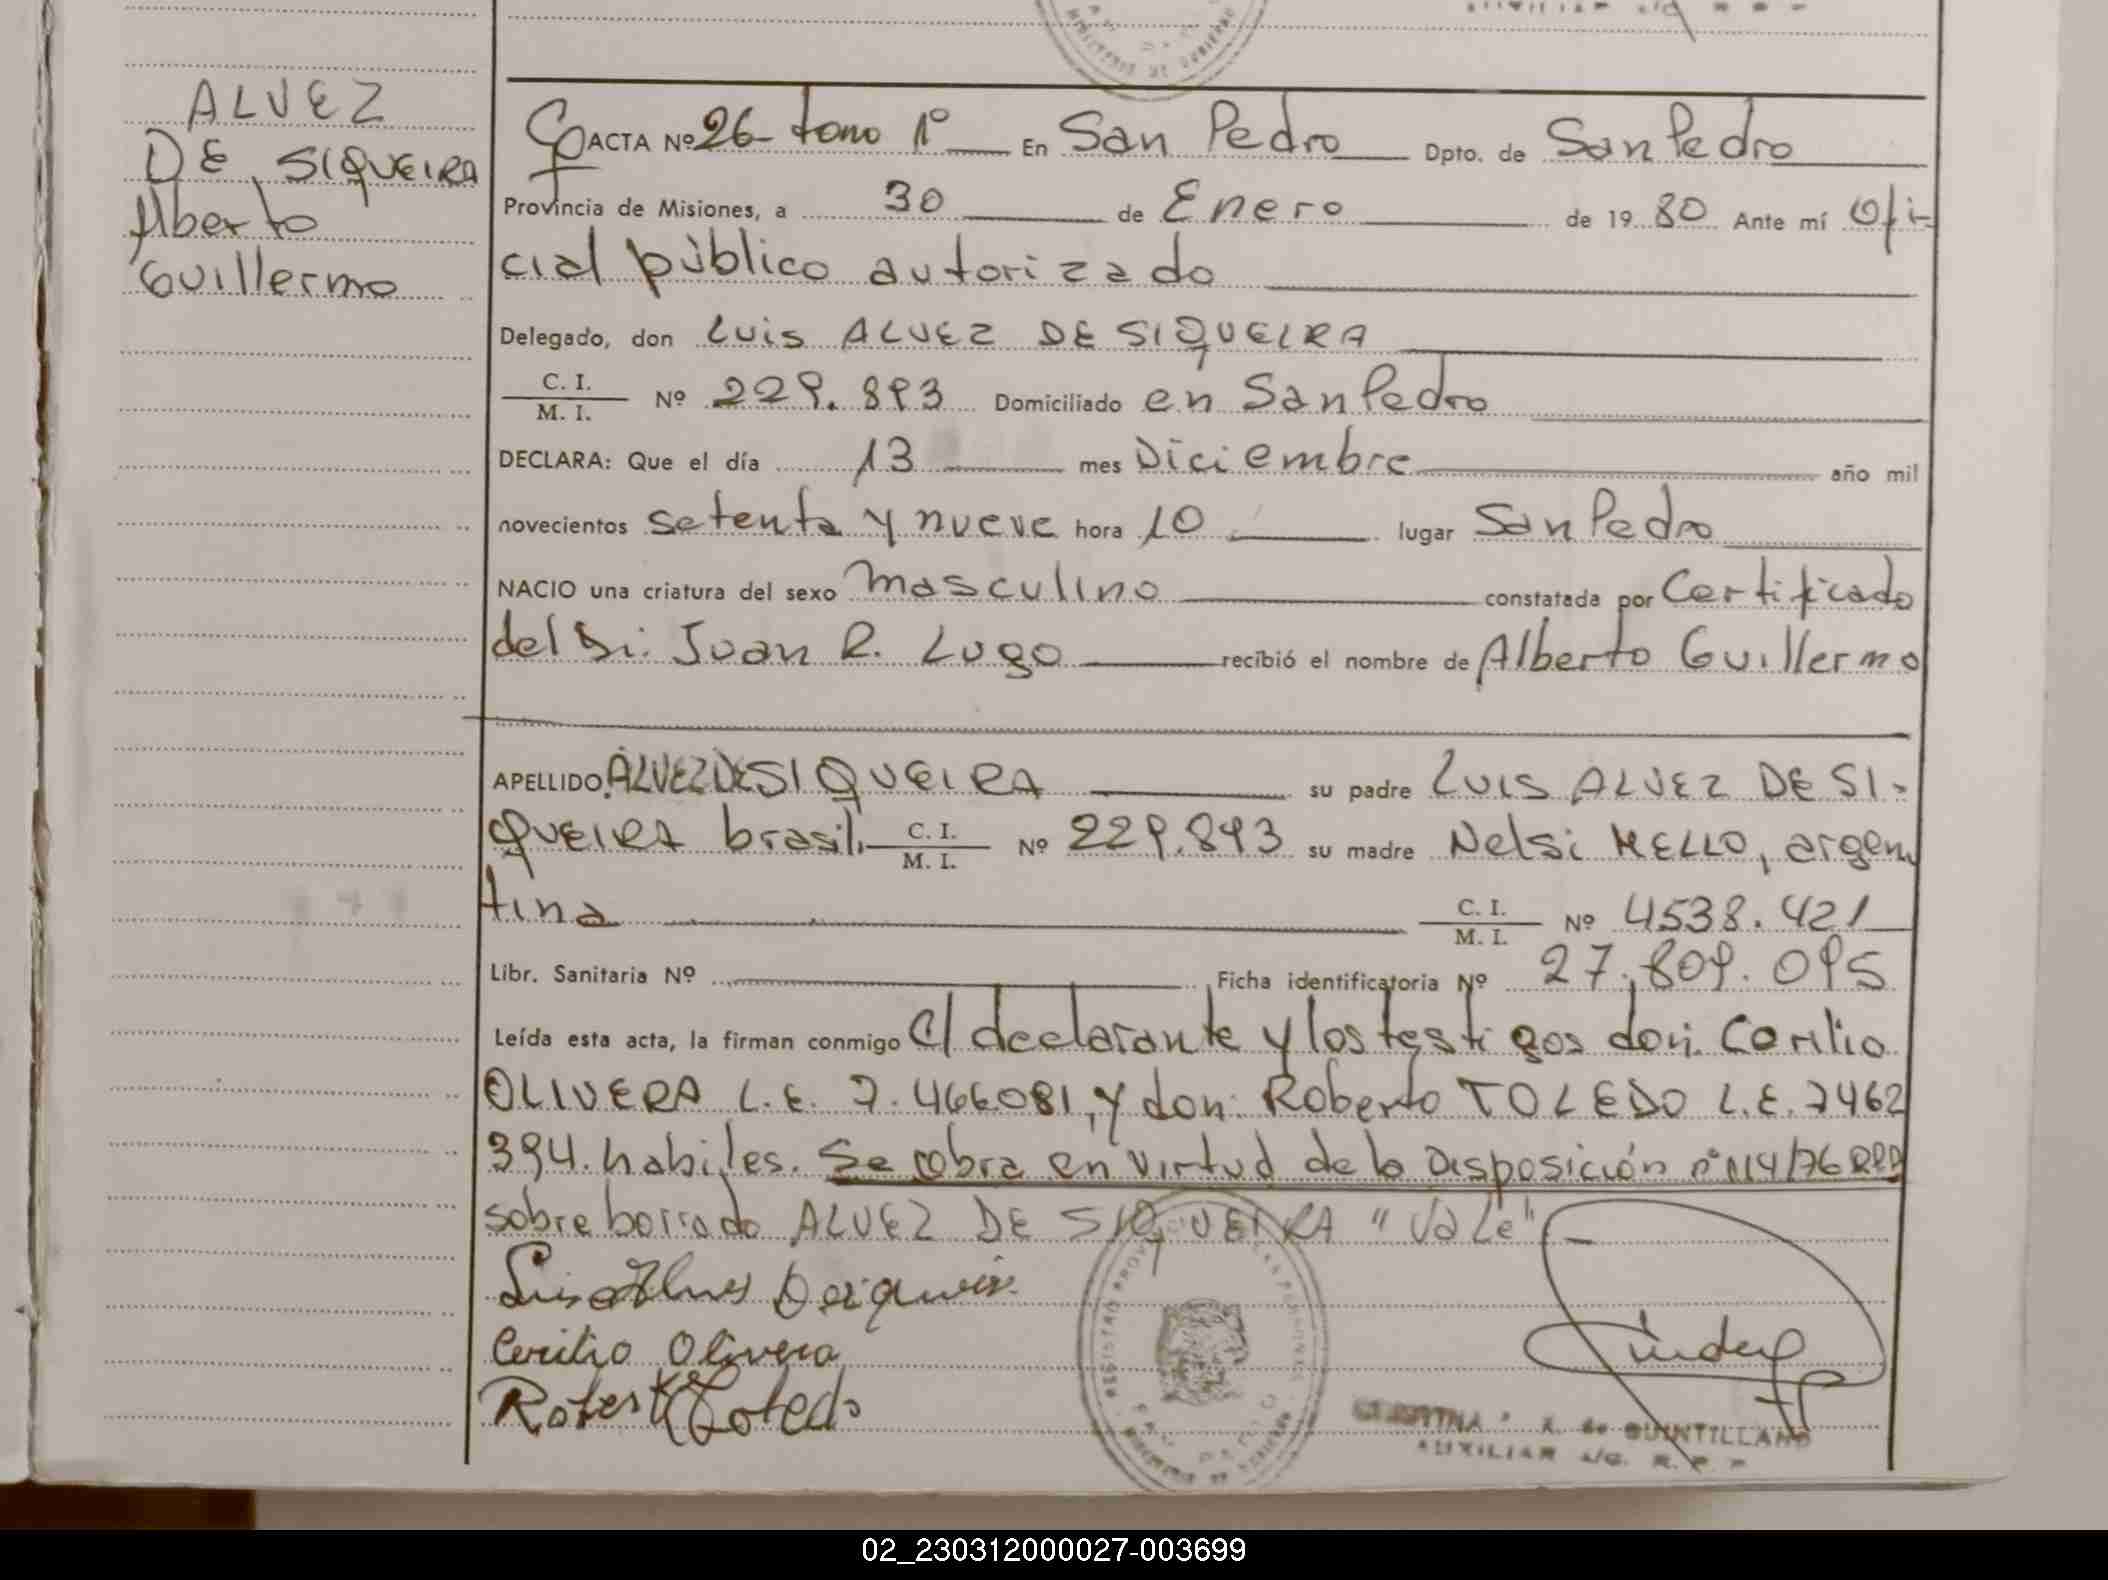 ALVEZ
DE SIQUEIRA
Alberto
Guillermo
ACTA Nº 26- tomo 1º En San Pedro Dpto. de San Pedro
Provincia de Misiones, a 30 de Enero de 19 80 Ante mí Ofi-
cial público autorizado
Delegado, don Luis ALVEZ DE SIQUEIRA
C. I.
M. I. Nº 229.893 Domiciliado en San Pedro
DECLARA: Que el día 13 mes Diciembre año mil
novecientos setenta y nueve hora 10 lugar San Pedro
NACIO una criatura del sexo masculino constatada por Certificado
del Dr. Juan R. Lugo recibió el nombre de Alberto Guillermo
APELLIDO ALVEZ DE SIQUEIRA su padre LUIS ALVEZ DE SI-
QUEIRA brasil. C. I.
M. I. Nº 229.893 su madre Nelsi MELLO, argen
tina C. I.
M. I. Nº 4538.421
Libr. Sanitaria Nº Ficha identificatoria Nº 27.809.095
Leída esta acta, la firman conmigo el declarante y los testigos don. Cerilio
OLIVERA L.E. 7.466081, y don. Roberto TOLEDO L.E. 7462
394. habiles. Se cobra en virtud de la Disposición nº 114/76 RPP
sobre borrado ALVEZ DE SIQUEIRA "Vale"
Cerilio Olivera
Roberto Toledo
QUINTILLANO
AUXILIAR a/c. R. P. P
02_230312000027-003699